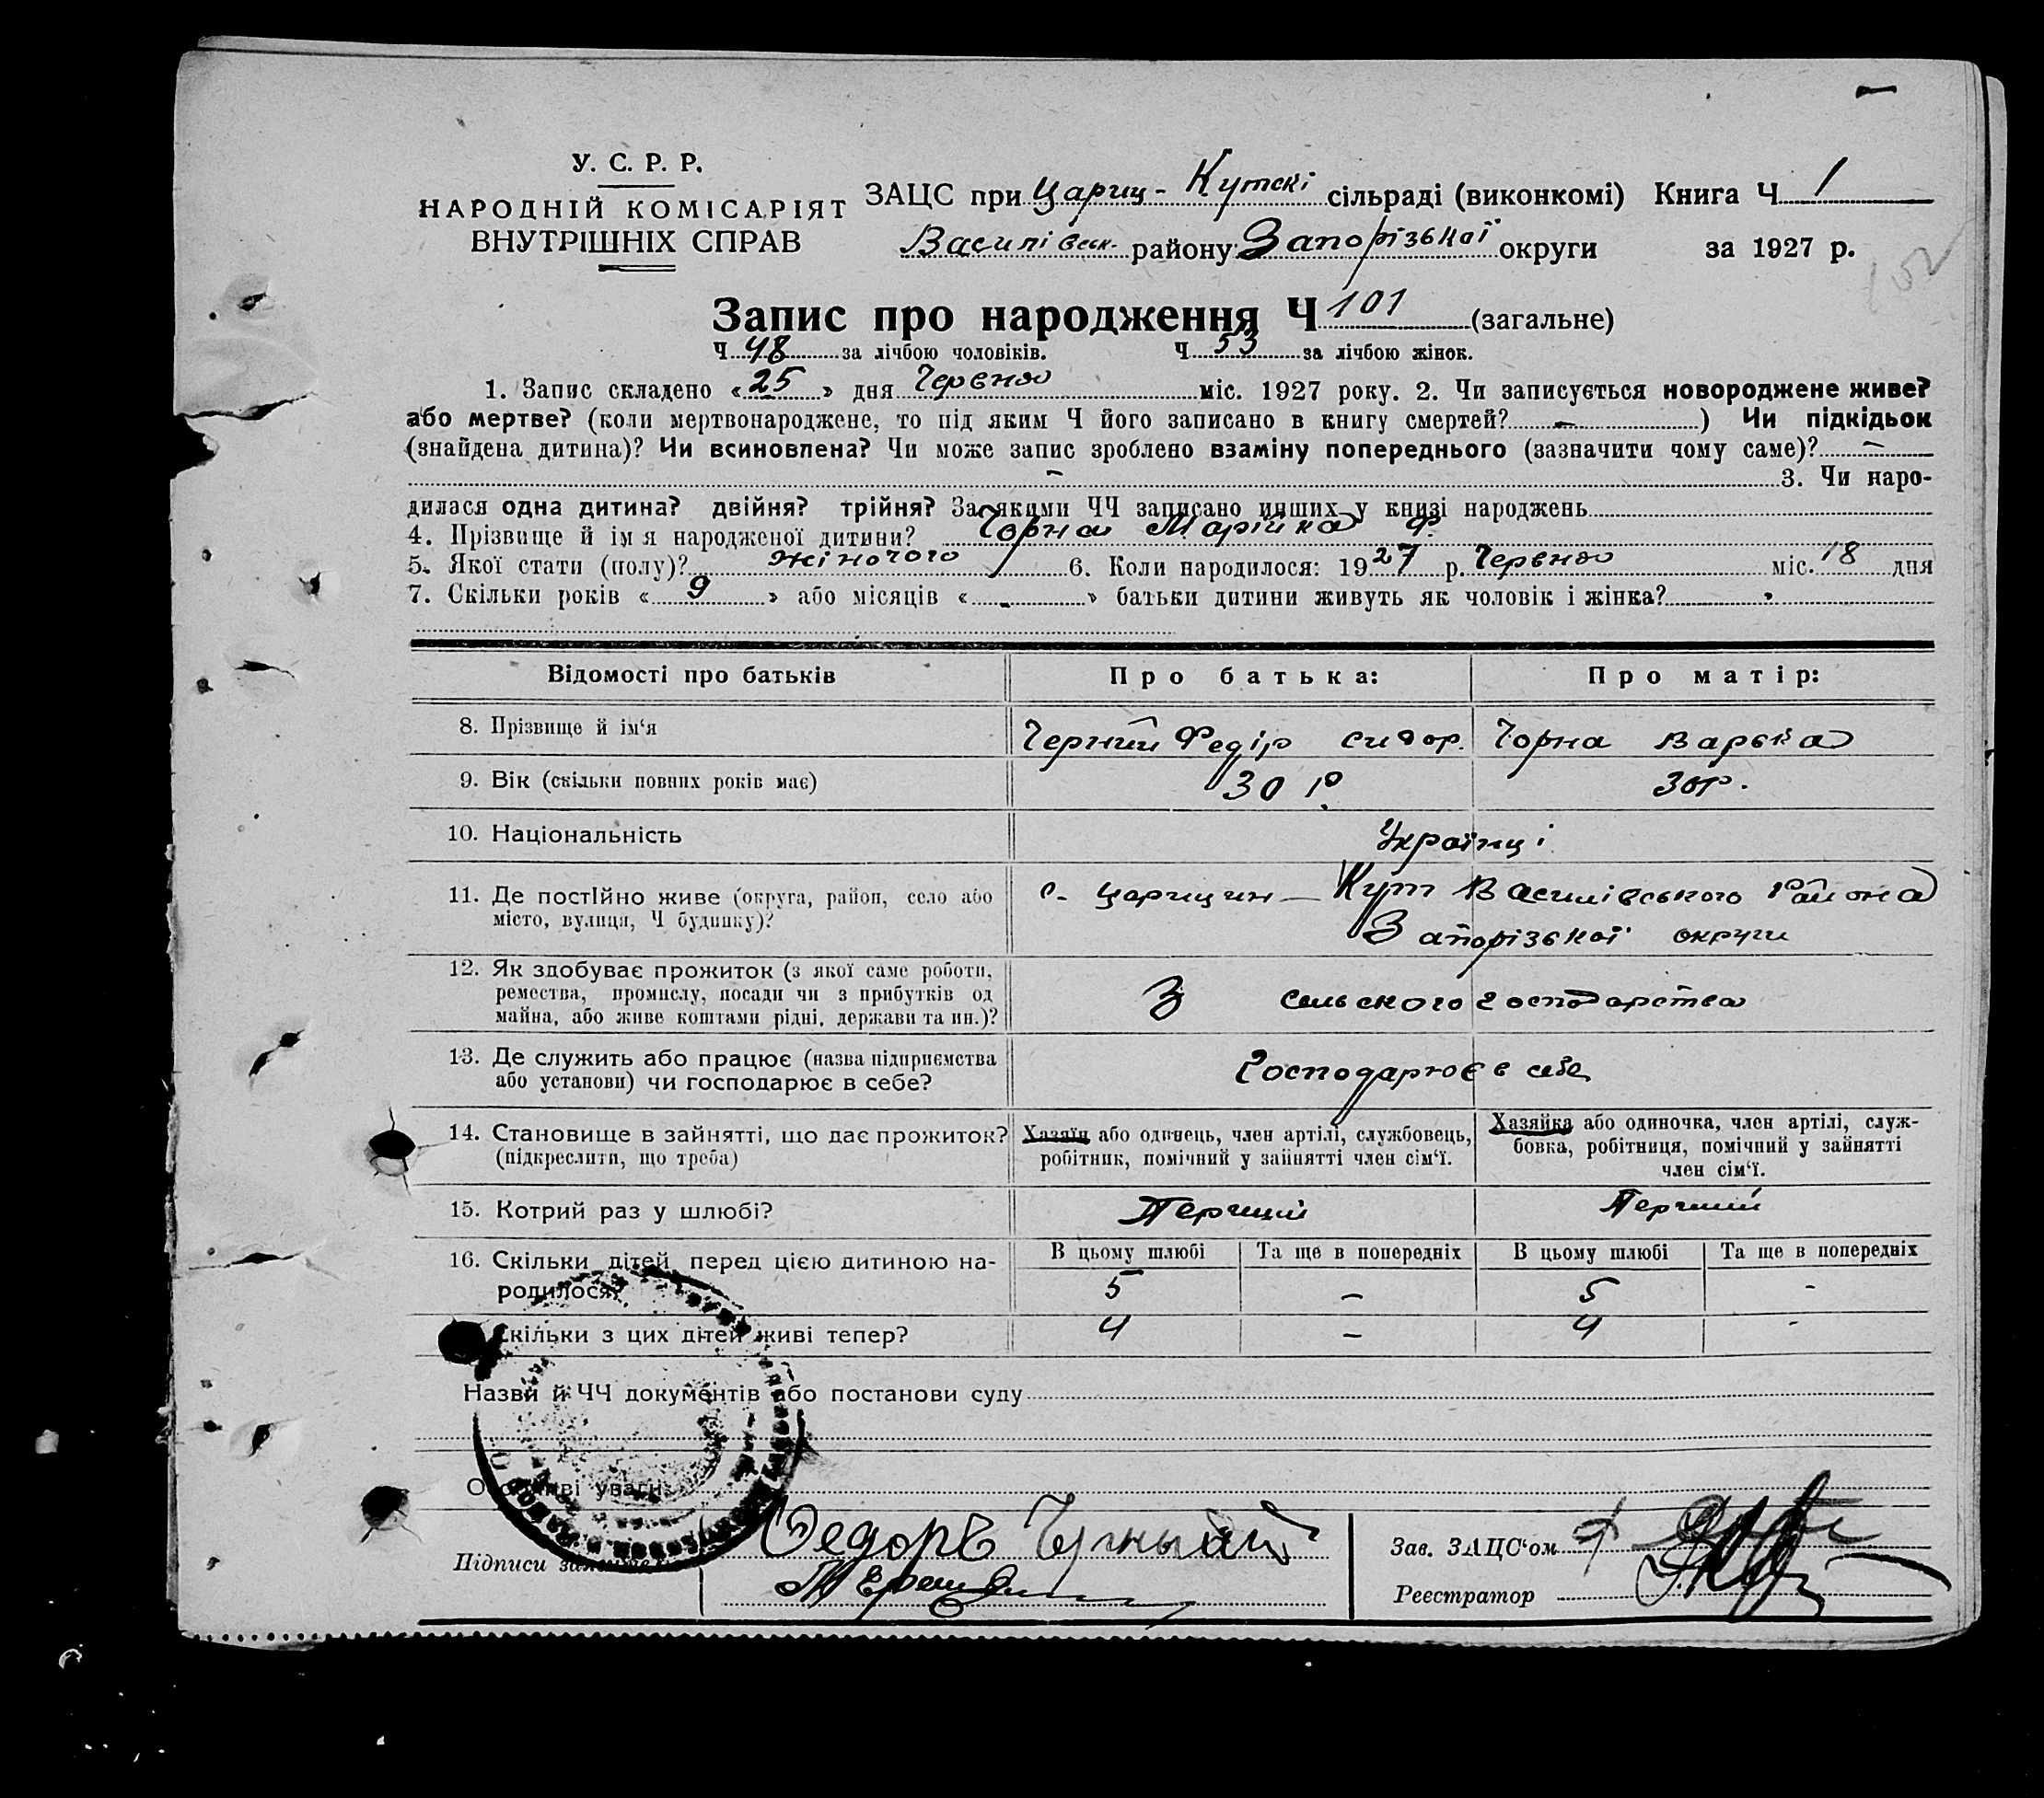 У. С. Р. Р.
НАРОДНІЙ КОМІСАРІЯТ
ВНУТРІШНІХ СПРАВ
ЗАЦС при Цариц-Кутскі сільраді (виконкомі) Книга Ч 1
Василівськ. району Запорізької округи за 1927 р.
Запис про народження Ч 101 (загальне)
Ч 48 за лічбою чоловіків. Ч 53 за лічбою жінок.
1. Запис складено «25» дня Червня міс. 1927 року. 2. Чи записується новороджене живе?
або мертве? (коли мертвонароджене, то під яким Ч його записано в книгу смертей? –) Чи підкідьок
(знайдена дитина)? Чи всиновлена? Чи може запис зроблено взаміну попереднього (зазначити чому саме)? –
– 3. Чи наро-
дилася одна дитина? двійня? трійня? За якими ЧЧ записано инших у книзі народжень
4. Прізвище й ім я народженої дитини? Чорна Марійка Ф.
5. Якої стати (полу)? жіночого 6. Коли народилося: 1927 р. Червня міс. 18 дня
7. Скільки років «9» або місяців «-» батьки дитини живуть як чоловік і жінка?
Відомості про батьків Про батька: Про матір:
8. Прізвище й ім‘я Черний Федір Сидор. Чорна Варька
9. Вік (скільки повних років має) 30 р. 30 р.
10. Національність Українці
11. Де постійно живе (округа, район, село або
місто, вулиця, Ч будинку)?
с. Царицин – Кут Василівського Района
Запорізької округи
12. Як здобуває прожиток (з якої саме роботи,
ремества, промислу, посади чи з прибутків од
майна, або живе коштами рідні, держави та ин.)?
З сельского господарства
13. Де служить або працює (назва підприємства
або установи) чи господарює в себе?
Господарює в себе
14. Становище в зайнятті, що дає прожиток?
(підкреслити, що треба)
Хазяїн або одинець, член артілі, службовець,
робітник, помічний у зайнятті член сім‘ї.
Хазяйка або одиночка, член артілі, служ-
бовка, робітниця, помічний у зайнятті
член сім‘ї.
15. Котрий раз у шлюбі? Перший Перший
16. Скільки дітей перед цією дитиною на-
родилося?
В цьому шлюбі Та ще в попередніх В цьому шлюбі Та ще в попередніх
5 – 5 -
Скільки з цих дітей живі тепер? 4 – 4 -
Назви й ЧЧ документів або постанови суду
Особливі уваги:
Підписи
Федоръ Чорный
Зав. ЗАЦС‘ом
Реєстратор